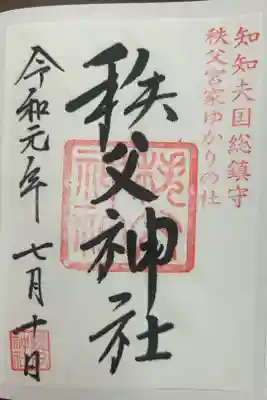 知知夫国総鎮守
秩父宮家ゆかりの社
秩父神社
令和元年 七月十日